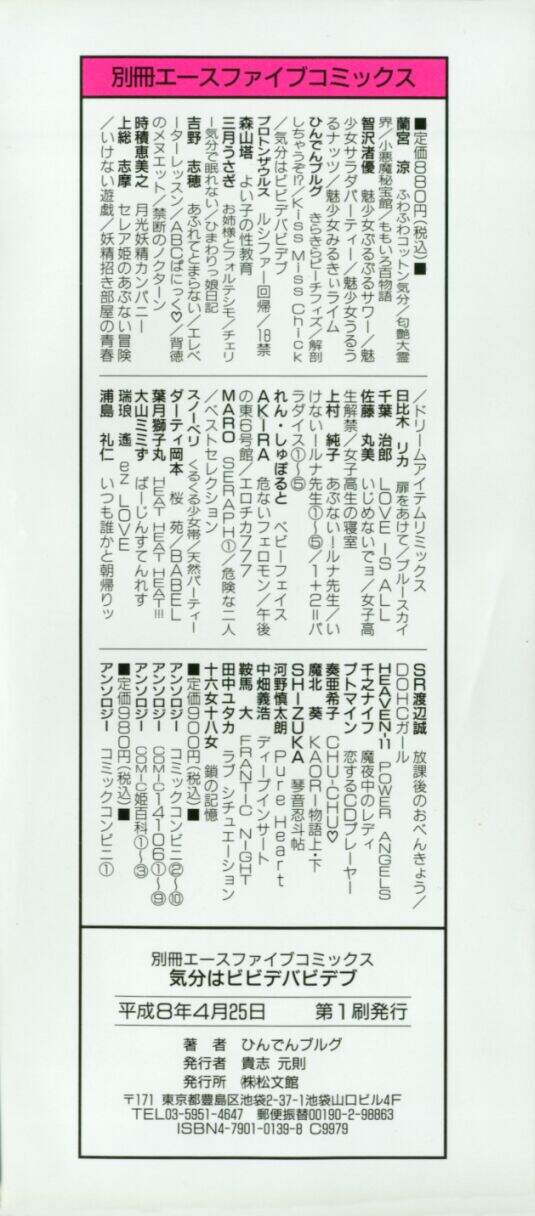 別冊エースファイブコミックス
■定価880円(税込)■
蘭宮 涼 ふわふわコットン気分/匂艶大霊
界/小悪魔秘宝館/ももいろ百物語
智沢渚優 魅少女ぷるぷるサワー/魅
少女サラダパーティー/魅少女うるう
るナッツ/魅少女みるきぃライム
ひんでんブルグ きらきらピーチフィズ/解剖
しちゃうぞ!?/Kiss Miss Chick
/気分はビビデバビデブ
プロトンザウルス ルシファー回帰/18禁
森山塔 よい子の性教育
三月うさぎ お姉様とフォルテシモ/チェリ
ー気分で眠れない/ひまわりっ娘日記
吉野 志穂 あふれてとまらない/エレベ
ーターレッスン/ABCぱにっく♡/背徳
のメヌエット/禁断のノクターン
時積恵美之 月光妖精カンパニー
上総 志摩 セレア姫のあぶない冒険
/いけない遊戯/妖精招き部屋の青春
/ドリームアイテムリミックス
日比木 リカ 扉をあけて/ブルースカイ
千葉 治郎 LOVE IS ALL
佐藤 丸美 いじめないでョ/女子高
生解禁/女子高生の寝室
上村 純子 あぶないールナ先生/い
けないールナ先生①〜⑤/1+2=パ
ラダイス①〜⑤
れん・しゅぼると ベビーフェイス
AKIRA 危ないフェロモン/午後
の東6号館/エロチカ777
MARO SERAPH①/危険な二人
/ベストセレクション
スノーベリ くるくる少女帯/天然パーティー
ダーティ岡本 桜 苑/BABEL
葉月獅子丸 HEAT HEAT HEAT!!!
大山ミミず ばーじんすてんれす
瑞浪 遙 ez LOVE
浦島 礼仁 いつも誰かと朝帰りッ
SR渡辺誠 放課後のおべんきょう/
DOHCガール
HEAVEN-11 POWER ANGELS
千之ナイフ 魔夜中のレディ
プトマイン 恋するCDプレーヤー
奏亜希子 CHU-CHU♡
魔北 葵 KAORI物語上・下
SHIZUKA 琴音忍斗帖
河野慎太朗 Pure Heart
中畑義浩 ディープインサート
鞍馬 大 FRANTIC NIGHT
田中ユタカ ラブ シチュエーション
十六女十八女 鎖の記憶
■定価900円(税込)■
アンソロジー コミックコンビニ②〜⑩
アンソロジー COMIC14106①〜⑨
アンソロジー COMIC姫百科①〜③
■定価980円(税込)■
アンソロジー コミックコンビニ①
別冊エースファイブコミックス
気分はビビデバビデブ
平成8年4月25日 第1刷発行
著 者 ひんでんブルグ
発行者 貴志 元則
発行所 ㈱松文館
〒171 東京都豊島区池袋2-37-1池袋山口ビル4F
TEL03-5951-4647 郵便振替00190-2-98863
ISBN4-7901-0139-8 C9979